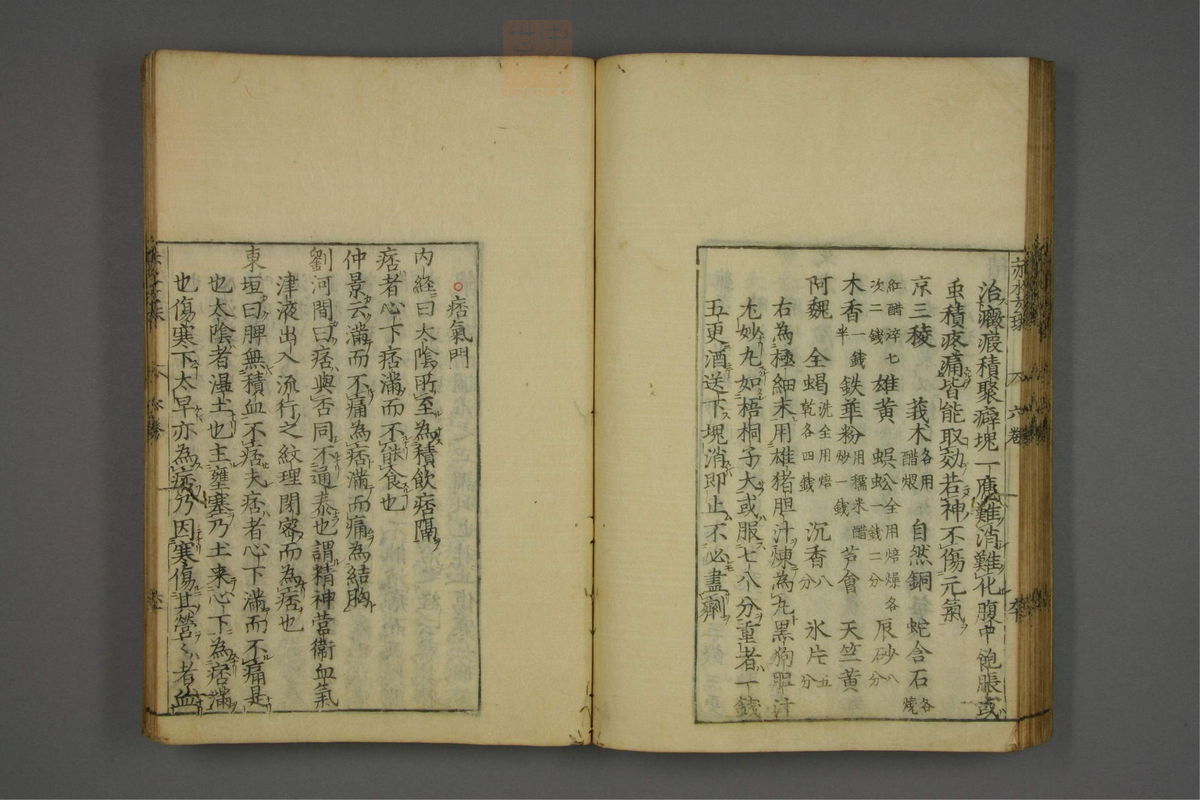 治癥瘕積聚癖塊一應難消難化腹中飽脹或
虫積疼痛皆能取効若神不傷元氣
京三稜 莪朮各用醋煨 自然銅 蛇含石各燒
紅醋淬七次二錢 雄黃 蜈蚣全用焙燥各一錢二分 辰砂八分
木香一錢半 鉄華粉用糯米醋炒一錢 芦會 天竺黃
阿魏 全蝎洗全用焙乾各四錢 沉香八分 氷片五分
右為極細末用雄猪胆汁煉為丸黑狗胆汁
尤妙丸如梧桐子大或服七八分重者一錢
五更酒送下塊消即止不必盡劑
痞氣門
内経曰太陰所至為積飲痞隔
痞者心下痞滿而不能食也
仲景云滿而不痛為痞滿而痛為結胸
劉河間曰痞與否同不通泰也謂精神営衛血氣
津液出入流行之紋理閉密而為痞也
東垣曰脾無積血不痞夫痞者心下滿而不痛是
也太陰者濕土也主壅塞乃土来心下為痞滿
也傷寒下太早亦為痞乃因寒傷其營〻者血